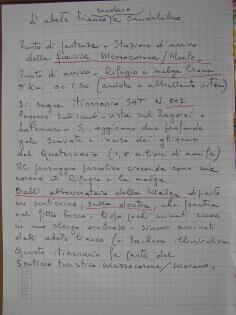 secolare
L'abete bianco a candelabro
Punto di partenza - Stazione d'arrivo
della funivia Mezzocorona / Monte.
Punto di arrivo - Rifugio e malga Craun
5 km ore 1,30 (andata e abbastanza ritorno)
Si segue itinerario SAT N. 507
Leggero saliscendi - vista sul Lagorai e
dintorni - Si aggirano due profonde
gole scavate e incise dai ghiacciai
del Quaternario (1,8 milioni di anni fa)
Il paesaggio pascolivo circonda come una
corona il Rifugio e la malga
Dall'abbeveratoio della Malga si parte
un sentierino, sulla destra, che penetra
nel fitto bosco. Dopo pochi minuti, ecco
in uno slargo ombroso - siamo arrivati
dall'abete bianco (vi bacheca illustrativa
Questo itinerario fa parte del
Sentiero turistico Mezzocorona /